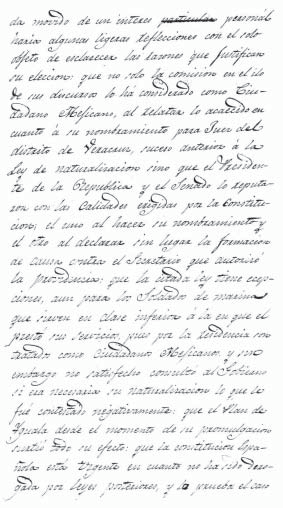 da movido de un interes particular personal
haria algunas ligeras reflecciones con el solo
objeto de esclarecer las razones que justifican
su eleccion: que no solo la comision en el ilo
de sus discursos lo ha considerado como Ciu-
dadano Mejicano, al relatar lo acaecido en
cuanto á su nombramiento para Juez del
distrito de Veracruz, suceso anterior á la
Ley de naturalizacion sino que el Presiden-
te de la Republica y el Senado lo reputa-
ron con las Calidades exigidas por la Constitu-
cion, el uno al hacer su nombramiento y
el otro al declarar sin lugar la formacion
de Causa contra el Secretario que autorizó
la providencia: que la citada ley tiene ecep-
ciones, aun para los Soldados de marina
que sirven en clase inferior á la en que el
prestó sus servicios, pues por la residencia son
tratados como Ciudadanos Mejicanos, y sin
embargo no satisfecho consultó al Gobierno
si era necesaria su naturalizacion lo que le
fué contestado negativamente: que el Plan de
Yguala desde el momento de su promulgacion
surtió todo su efecto: que la constitucion Espa-
ñola está vigente en cuanto no ha sido dero-
gada por leyes posteriores, y lo prueba el caso